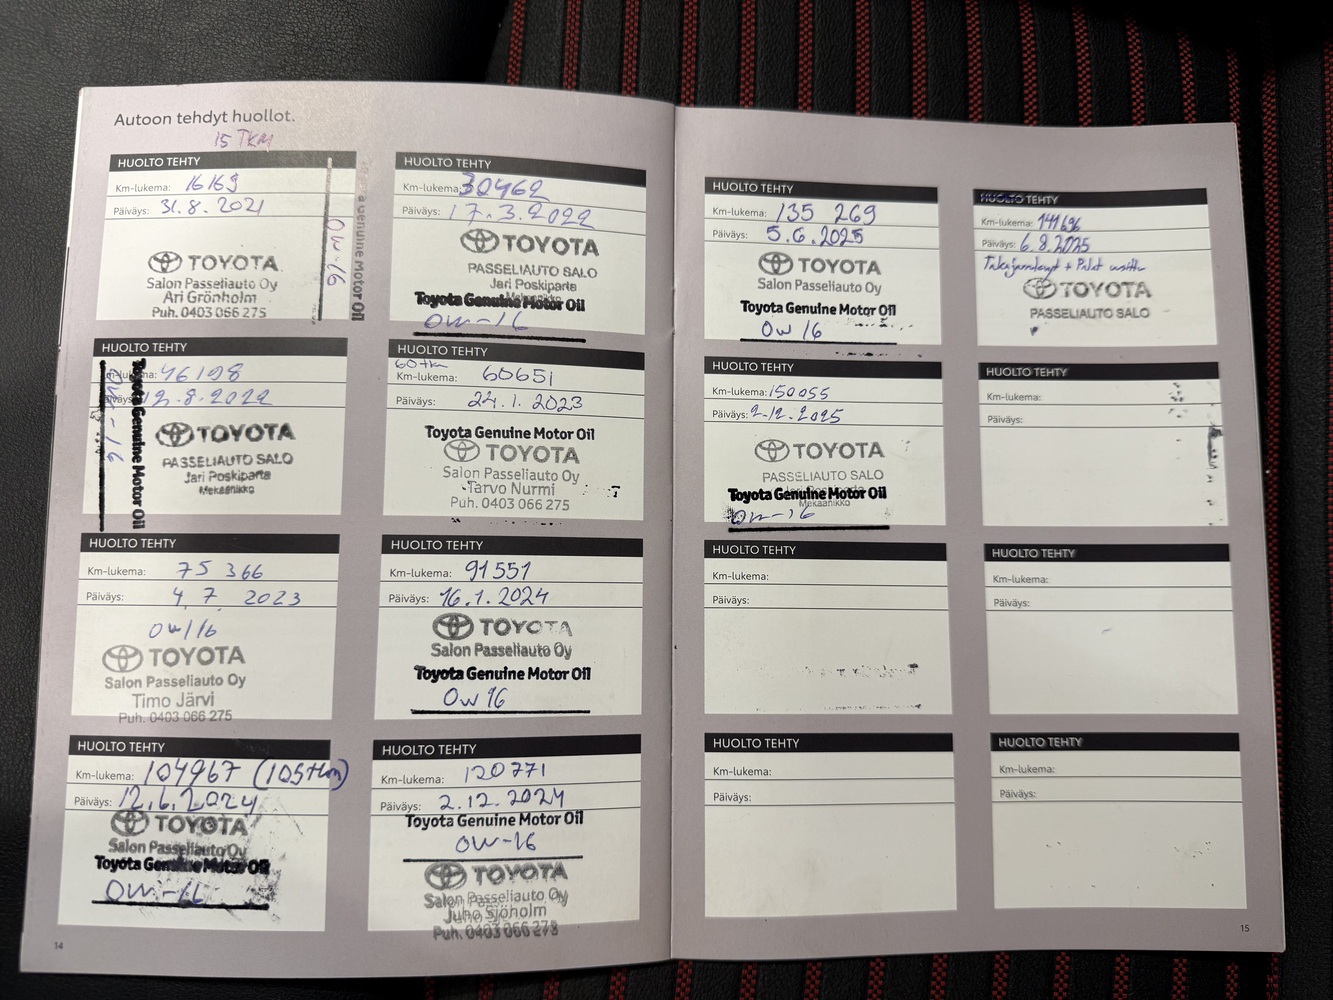 Autoon tehdyt huollot.
15 TKM
HUOLTO TEHTY
Km-lukema: 16169
Päiväys: 31.8.2021
TOYOTA
Salon Passeliauto Oy
Ari Grönholm
Puh. 0403 066 275
Genuine Motor Oil
0w-16
HUOLTO TEHTY
Km-lukema: 30462
Päiväys: 17.3.2022
TOYOTA
PASSELIAUTO SALO
Jari Poskiparta
Mekaanikko
Toyota Genuine Motor Oil
0w-16
HUOLTO TEHTY
Km-lukema: 46198
Päiväys: 12.8.2022
TOYOTA
PASSELIAUTO SALO
Jari Poskiparta
Mekaanikko
Toyota Genuine Motor Oil
0w-16
HUOLTO TEHTY
60tkm
Km-lukema: 60651
Päiväys: 24.1.2023
Toyota Genuine Motor Oil
TOYOTA
Salon Passeliauto Oy
Tarvo Nurmi
Puh. 0403 066 275
HUOLTO TEHTY
Km-lukema: 75 366
Päiväys: 4.7.2023
0w16
TOYOTA
Salon Passeliauto Oy
Timo Järvi
Puh. 0403 066 275
HUOLTO TEHTY
Km-lukema: 91551
Päiväys: 16.1.2024
TOYOTA
Salon Passeliauto Oy
Toyota Genuine Motor Oil
0w16
HUOLTO TEHTY
Km-lukema: 104967 (105tkm)
Päiväys: 12.6.2024
TOYOTA
Salon Passeliauto Oy
Toyota Genuine Motor Oil
0w-16
HUOLTO TEHTY
Km-lukema: 120771
Päiväys: 2.12.2024
Toyota Genuine Motor Oil
0w-16
TOYOTA
Salon Passeliauto Oy
Juho Sjöholm
Puh. 0403 066 278
14
HUOLTO TEHTY
Km-lukema: 135 269
Päiväys: 5.6.2025
TOYOTA
Salon Passeliauto Oy
Toyota Genuine Motor Oil
0w16
HUOLTO TEHTY
Km-lukema: 141696
Päiväys: 6.8.2025
Takajarrulevyt + Palat
TOYOTA
PASSELIAUTO SALO
HUOLTO TEHTY
Km-lukema: 150055
Päiväys: 2.12.2025
TOYOTA
PASSELIAUTO SALO
Jari Poskiparta
Mekaanikko
Toyota Genuine Motor Oil
0w-16
HUOLTO TEHTY
Km-lukema:
Päiväys:
HUOLTO TEHTY
Km-lukema:
Päiväys:
HUOLTO TEHTY
Km-lukema:
Päiväys:
HUOLTO TEHTY
Km-lukema:
Päiväys:
HUOLTO TEHTY
Km-lukema:
Päiväys:
15